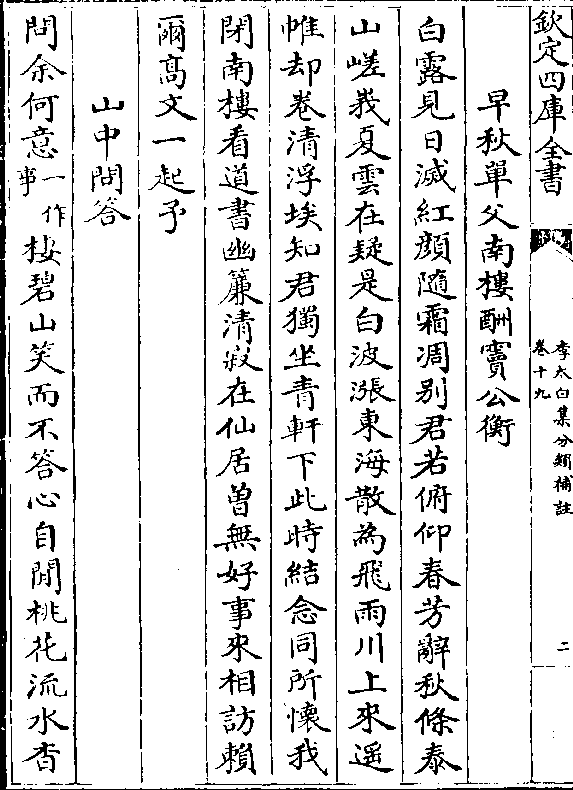 欽定四庫全書
李太白集分類補註
卷十九
二
早秋單父南樓酬竇公衡
白露見日滅紅顔隨霜凋别君若俯仰春芳辭秋條泰
山嵯峩夏雲在疑是白波漲東海散為飛雨川上來遥
帷却卷清浮埃知君獨坐青軒下此時結念同所懷我
閉南樓看道書幽簾清寂在仙居曽無好事來相訪賴
爾髙文一起予
山中問答
問余何意一作事棲碧山笑而不答心自閒桃花流水杳